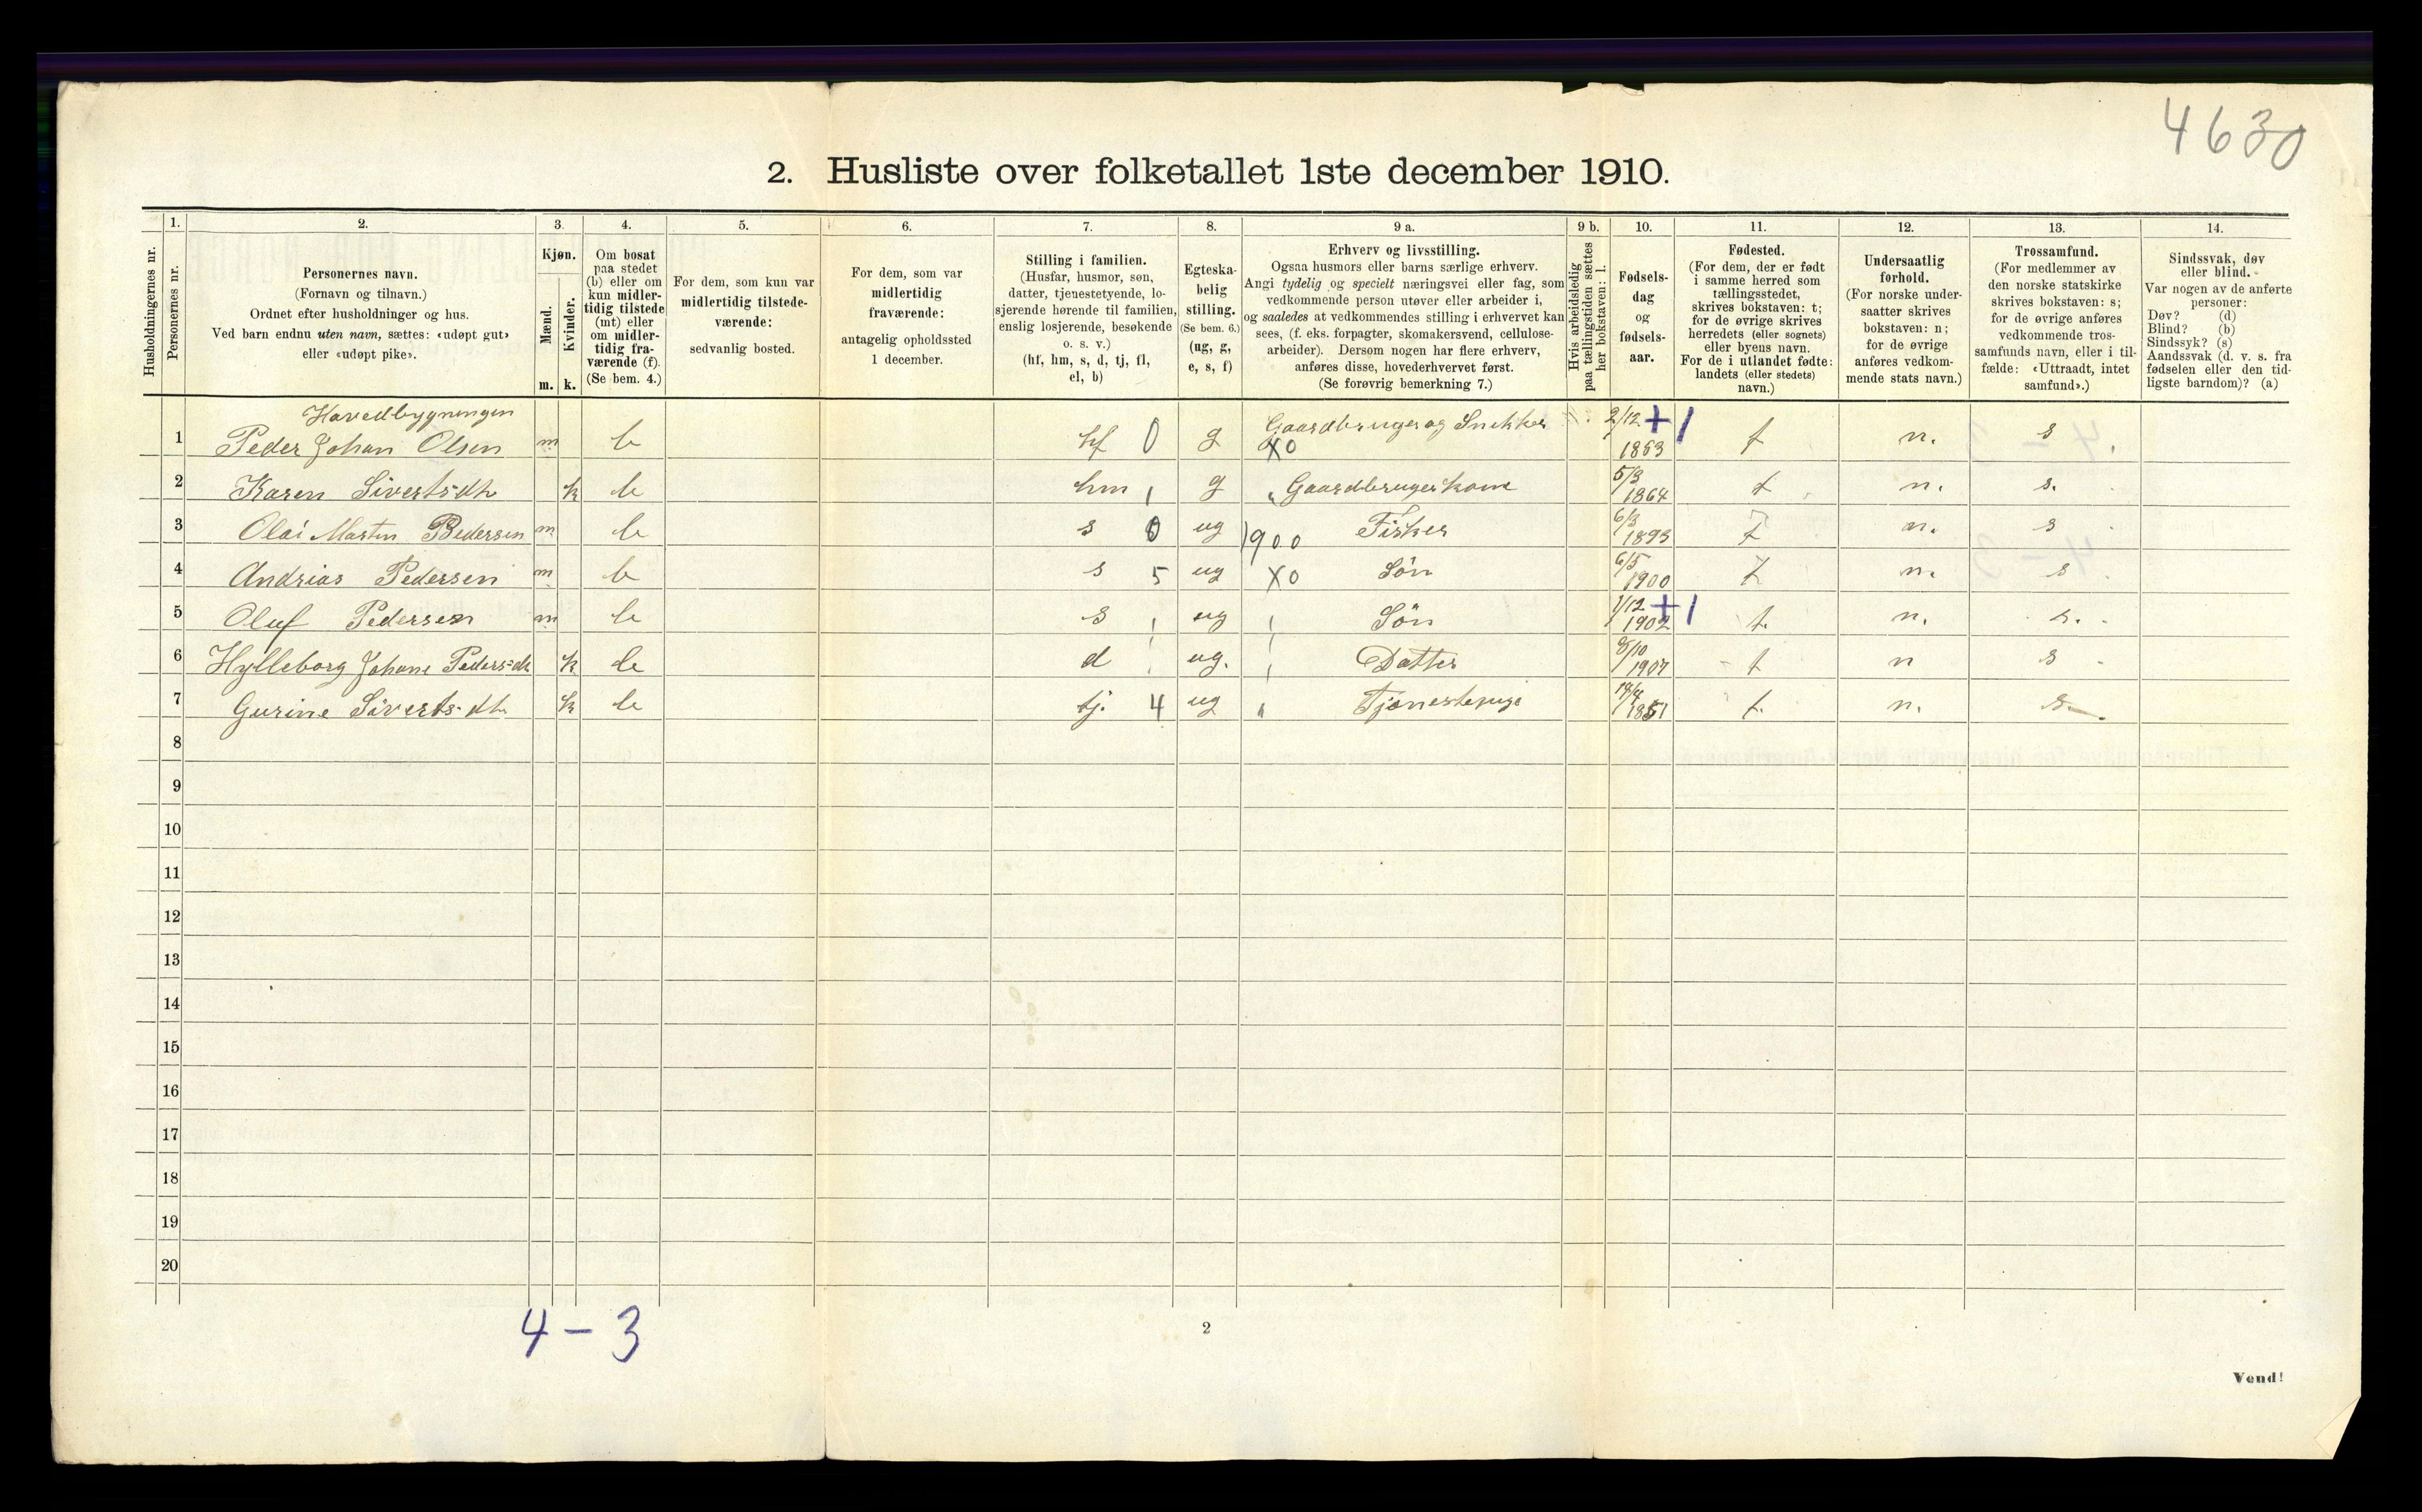 4630
2. Husliste over folketallet 1ste december 1910.
Husholdningernes nr.
1.
Personernes nr.
2.
Personernes navn.
(Fornavn og tilnavn.)
Ordnet efter husholdninger og hus.
Ved barn endnu uten navn, sættes: «udøpt gut»
eller «udøpt pike».
3.
Kjøn.
Mænd.
m.
Kvinder.
k.
4.
Om bosat
paa stedet
(b) eller om
kun midler-
tidig tilstede
(mt) eller
om midler-
tidig fra-
værende (f).
(Se bem. 4.)
5.
For dem, som kun var
midlertidig tilstede-
værende:
sedvanlig bosted.
6.
For dem, som var
midlertidig
fraværende:
antagelig opholdssted
1 december.
7.
Stilling i familien.
(Husfar, husmor, søn,
datter, tjenestetyende, lo-
sjerende hørende til familien,
enslig losjerende, besøkende
o. s. v.)
(hf, hm, s, d, tj, fl,
el, b)
8.
Egteska-
belig
stilling.
(Se bem. 6.)
(ug, g,
e, s, f)
9 a.
Erhverv og livsstilling.
Ogsaa husmors eller barns særlige erhverv.
Angi tydelig og specielt næringsvei eller fag, som
vedkommende person utøver eller arbeider i,
og saaledes at vedkommendes stilling i erhvervet kan
sees, (f. eks. forpagter, skomakersvend, cellulose-
arbeider). Dersom nogen har flere erhverv,
anføres disse, hovederhvervet først.
(Se forøvrig bemerkning 7.)
9 b.
Hvis arbeidsledig
paa tællingstiden sættes
her bokstaven: l.
10.
Fødsels-
dag
og
fødsels-
aar.
11.
Fødested.
(For dem, der er født
i samme herred som
tællingsstedet,
skrives bokstaven: t;
for de øvrige skrives
herredets (eller sognets)
eller byens navn.
For de i utlandet fødte:
landets (eller stedets)
navn.)
12.
Undersaatlig
forhold.
(For norske under-
saatter skrives
bokstaven: n;
for de øvrige
anføres vedkom-
mende stats navn.)
13.
Trossamfund.
(For medlemmer av
den norske statskirke
skrives bokstaven: s;
for de øvrige anføres
vedkommende tros-
samfunds navn, eller i til-
fælde: «Uttraadt, intet
samfund».)
14.
Sindssvak, døv
eller blind.
Var nogen av de anførte
personer:
Døv? (d)
Blind? (b)
Sindssyk? (s)
Aandssvak (d. v. s. fra
fødselen eller den tid-
ligste barndom)? (a)
Havedbygningen
1 Peder Johan Olsen m b hf 0 g Gaardbruger og Snekker X0 2/12 1863 +1 t n. s
2 Karen Sivertsdtr k b hm g Gaardbrugerkone 5/3 1864 t n. s.
3 Olai Martin Pedersen m b s 0 ug 1900 Fisker 6/3 1893 t n. s
4 Andrias Pedersen m b s 5 ug X0 Sön 6/5 1900 t n. s
5 Oluf Pedersen m b s ug Sön 1/12 1902 +1 t. n. s.
6 Hylleborg Johane Peders=dt k b d ug. Datter 1907 t n s
7 Gurine Siverts-dtr k b tj. 4 ug 1851 t. n. s.
8
9
10
11
12
13
14
15
16
17
18
19
20
4 - 3
2
Vend!